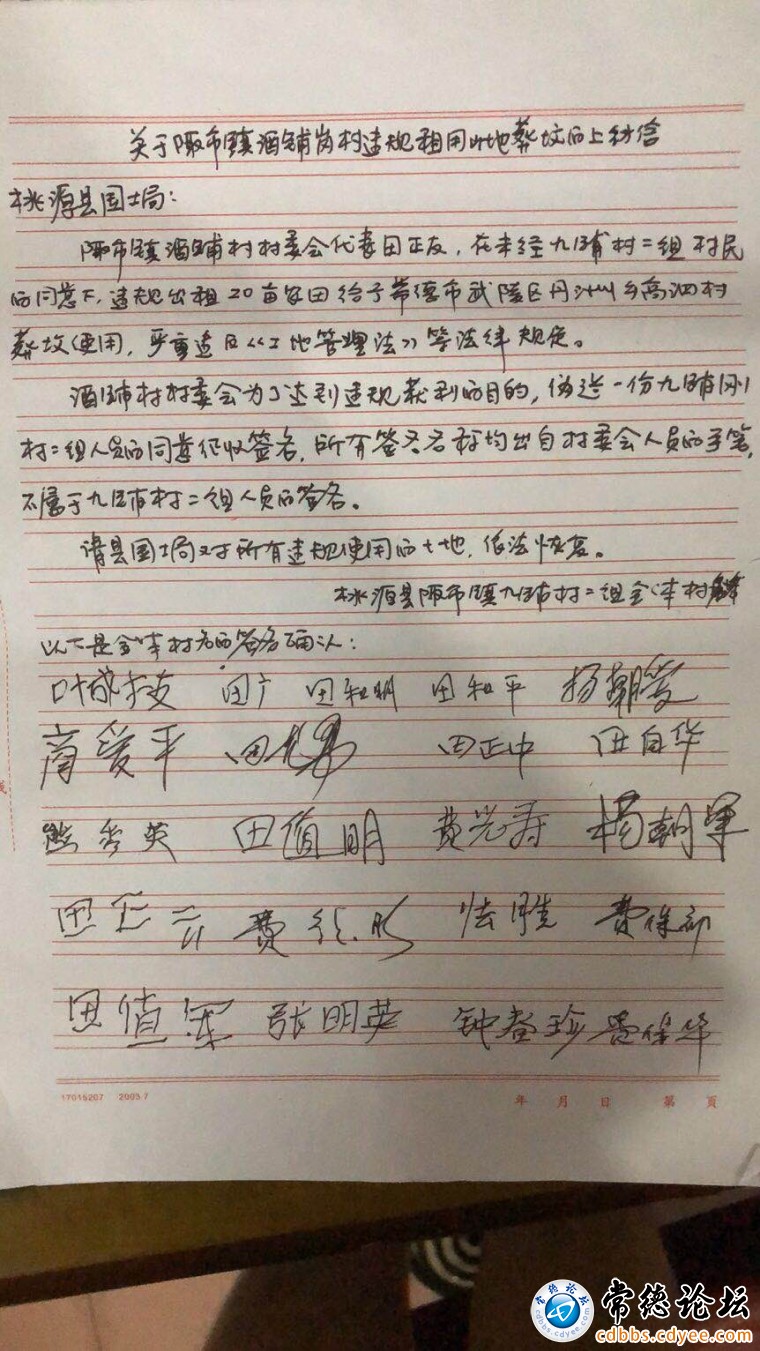 关于陬市镇酒铺岗村违规租用山地葬坟的上纺信
桃源县国土局：
陬市镇酒铺村村委会代表田正友，在未经九铺村二组村民
的同意下，违规出租20亩农田给予常德市武陵区丹洲乡高泗村
葬坟使用，严重违反《土地管理法》等法律规定。
酒铺村村委会为了达到违规获利的目的，伪造一份九铺岗
村二组人员的同意征收签名，所有签名名称均出自村委会人员的手笔，
不属于九铺村二组人员的签名。
请县国土局对于所有违规使用的土地，依法恢复。
桃源县陬市镇九铺村二组全体村
以下是全体村名的签名确认：
叶成枝 田广 田和明 田和平 杨朝爱
高爱平 田 田正中 田自华
熊秀英 田值明 费光寿 杨朝军
田正云 费 费保
田值军 张明英 钟春珍 费保华
17015207 2005.7 年 月 日 第 頁
常德论坛
cdbbs.cdyee.com